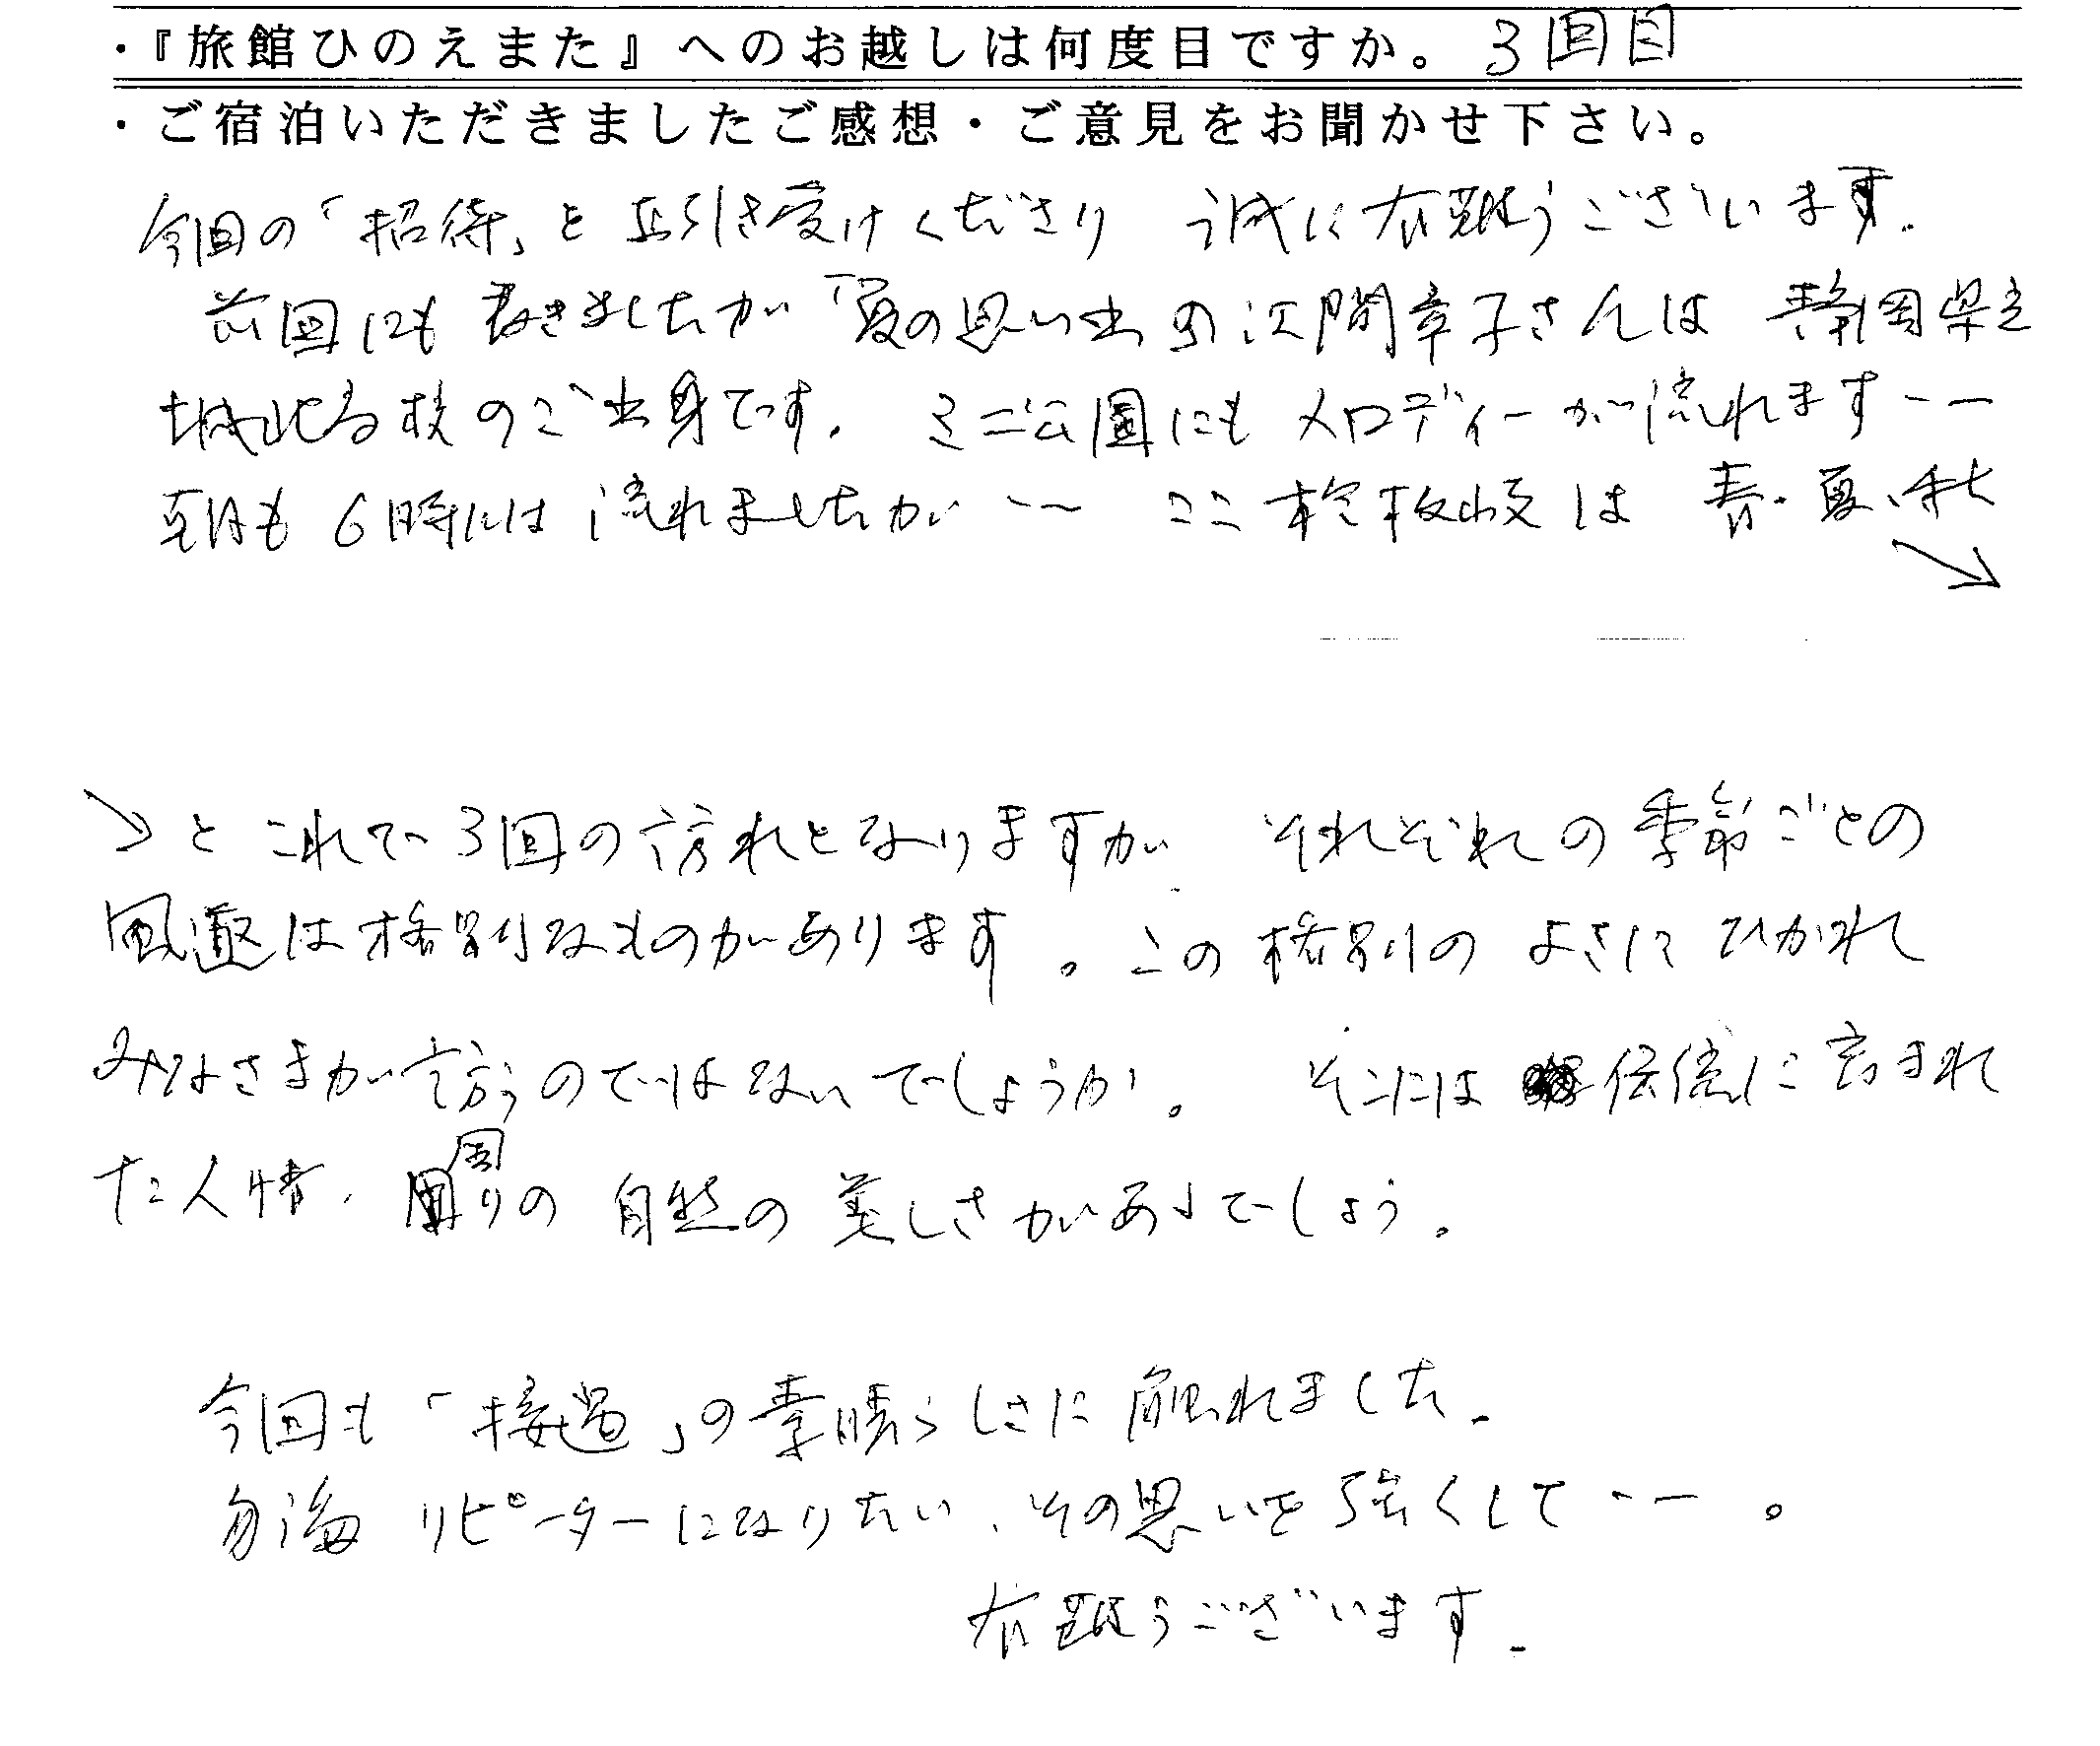 ・『旅館ひのえまた』へのお越しは何度目ですか。 3回目
・ご宿泊いただきましたご感想・ご意見をお聞かせ下さい。
今回の「招待」とお引き受けくださり 誠に有難うございます.
前回にも書きましたが「夏の思い出の江間章子さんは 静岡県立
城北高校のご出身です. ミニ公園にもメロディーが流れます――
朝も6時には流れましたが―― ここ桧枝岐は 春・夏、秋
↘
↘と これで3回の訪れとなりますが それぞれの季節ごとの
風趣は格別なものがあります。この格別のよさにひかれ
みなさまが訪うのではないでしょうか。 そこには 伝統に育まれ
た人情、周りの 自然の美しさがあるでしょう.
今回も「接遇」の素晴らしさに触れました.
今後 リピーターになりたい、その思いを強くして――。
有難うございます.